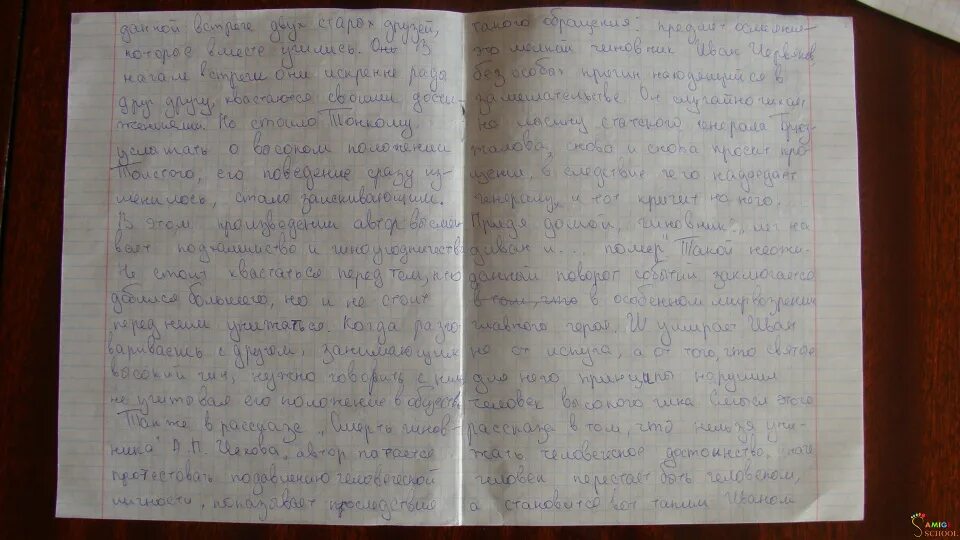 данной встрече двух старох друзей,
которое вместе учились. Они В
начале встречи они искренне рады
друг другу, хвастаются своими дости-
жениями. Но стоило Тонкому
услышать о высоком положении
Толстого, его поведение сразу из-
менилось, стало заискивающим.
В этом произведении автор высмеи-
вает подхалимство и чиноугодничество
Не стоит хвастаться перед тем, кто
добился большего, но и не стоит
перед ним унижаться. Когда разго-
вариваешь с другом, занимающим
высокий чин, нужно говорить с ним
не учитывая его положение в обществе
Также в рассказе "Смерть чинов-
ника" А.П. Чехова, автор пытается
протестовать подавлению человеческой
личности, показывает последствия
такого обращения: предмет осмеяния-
это мелкий чиновник Иван Червяков
без особых причин находящийся в
замешательстве. Он случайно чихает
на лысину статского генерала Бриз-
жалова, снова и снова просит про-
щения, в следствие чего надоедает
генералу, и тот кричит на него.
Придя домой, чиновник лег на
диван и... помер. Такой неожи-
данный поворот событий заключается
в том, что в особенном мировоззрении
главного героя. И умирает Иван
но от испуга, а от того, что святые
для него принципы нарушил
человек высокого чина. Смысл этого
рассказа в том, что нельзя уни-
жать человеческое достоинство, иначе
человек перестает быть человеком,
а становится вот таким Иваном
AMIGO
SCHOOL